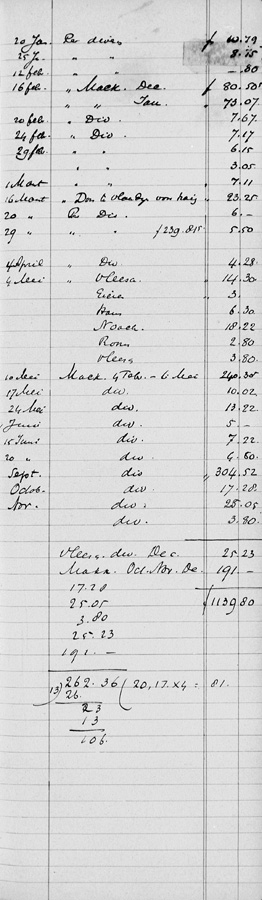 20 Jan. Per divers f 60.79
25 J. " " 8.75
12 feb. " " -.80
16 feb. " Mack. Dec. f 80.50
" " Jan. " 73.07
20 feb. " Div. 7.67
24 feb. " Div. 7.17
29 feb. " " 6.15
" " 3.05
1 Maart " " " 7.11
16 Maart " f 23.25
20 " Per Div. " 6.-
29 " " " f 239.815 5.50
4 April " Div 4.28
4 Mei " Vleesch " 14.30
Eieren " 3.
Ham 6.30
18.22
2.80
Vleesch 3.80
10 Mei Mack. 4 Feb. - 6 Mei 240.30
17 Mei div. 10.02
24 Mei div. 13.22
1 Juni div. 5 -
15 Juni div. 7.22
20 " div. 6.60
Sept. div " 304.52
Octob. div 17.28
Nov. div. 25.05
div. 3.80
Vleesch. div. Dec. 25.23
Makk. Oct. Nov. De. 191.-
17.28
25.05 f 1139 80
3.80
25.23
191.-
13) 262.36 ( 20,17. x4 = 81.
26.
23
13
106.